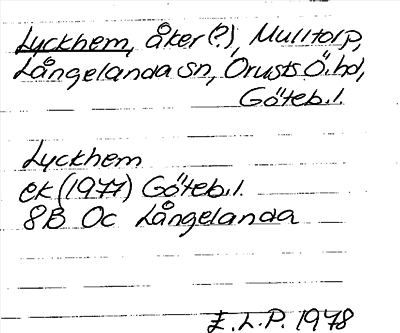 Lyckhem, åker(?), Mulltorp,
Långelanda sn, Orusts Ö. hd,
Göteb. l.
Lyckhem
ek (1977) Göteb. l.
8B 0c Långelanda
E. L. P. 1978